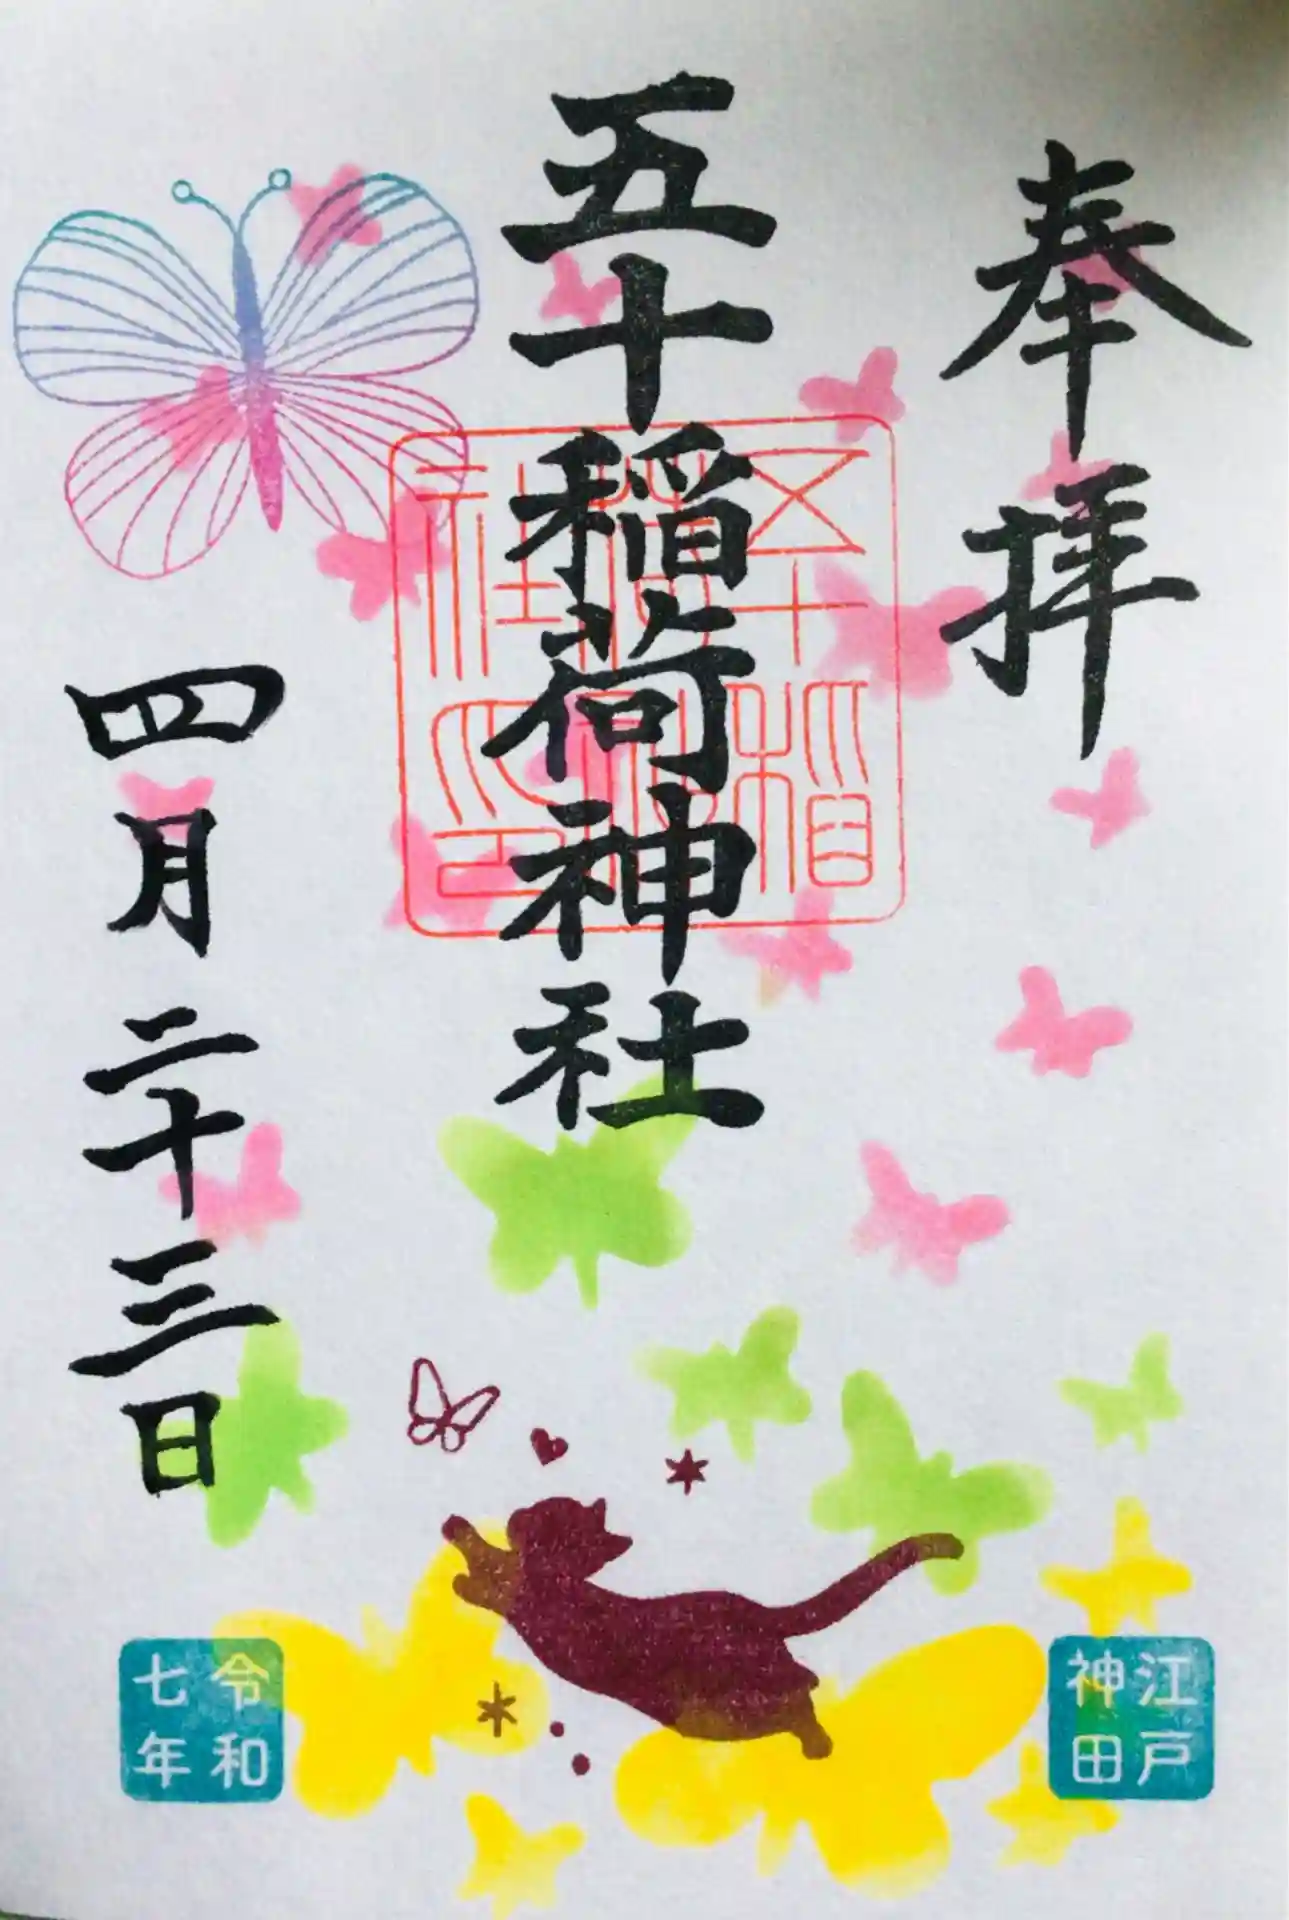 奉拝
五十稲荷神社
四月二十三日
五十稲
荷神
社印
江戸
神田
令和
七年